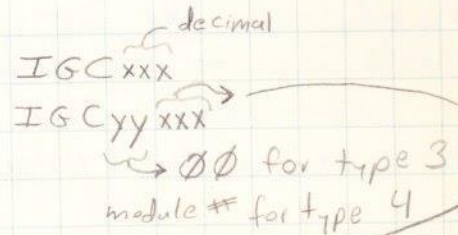 decimal
IGCxxx
IGCyyxxx
ØØ for type 3
module # for type 4